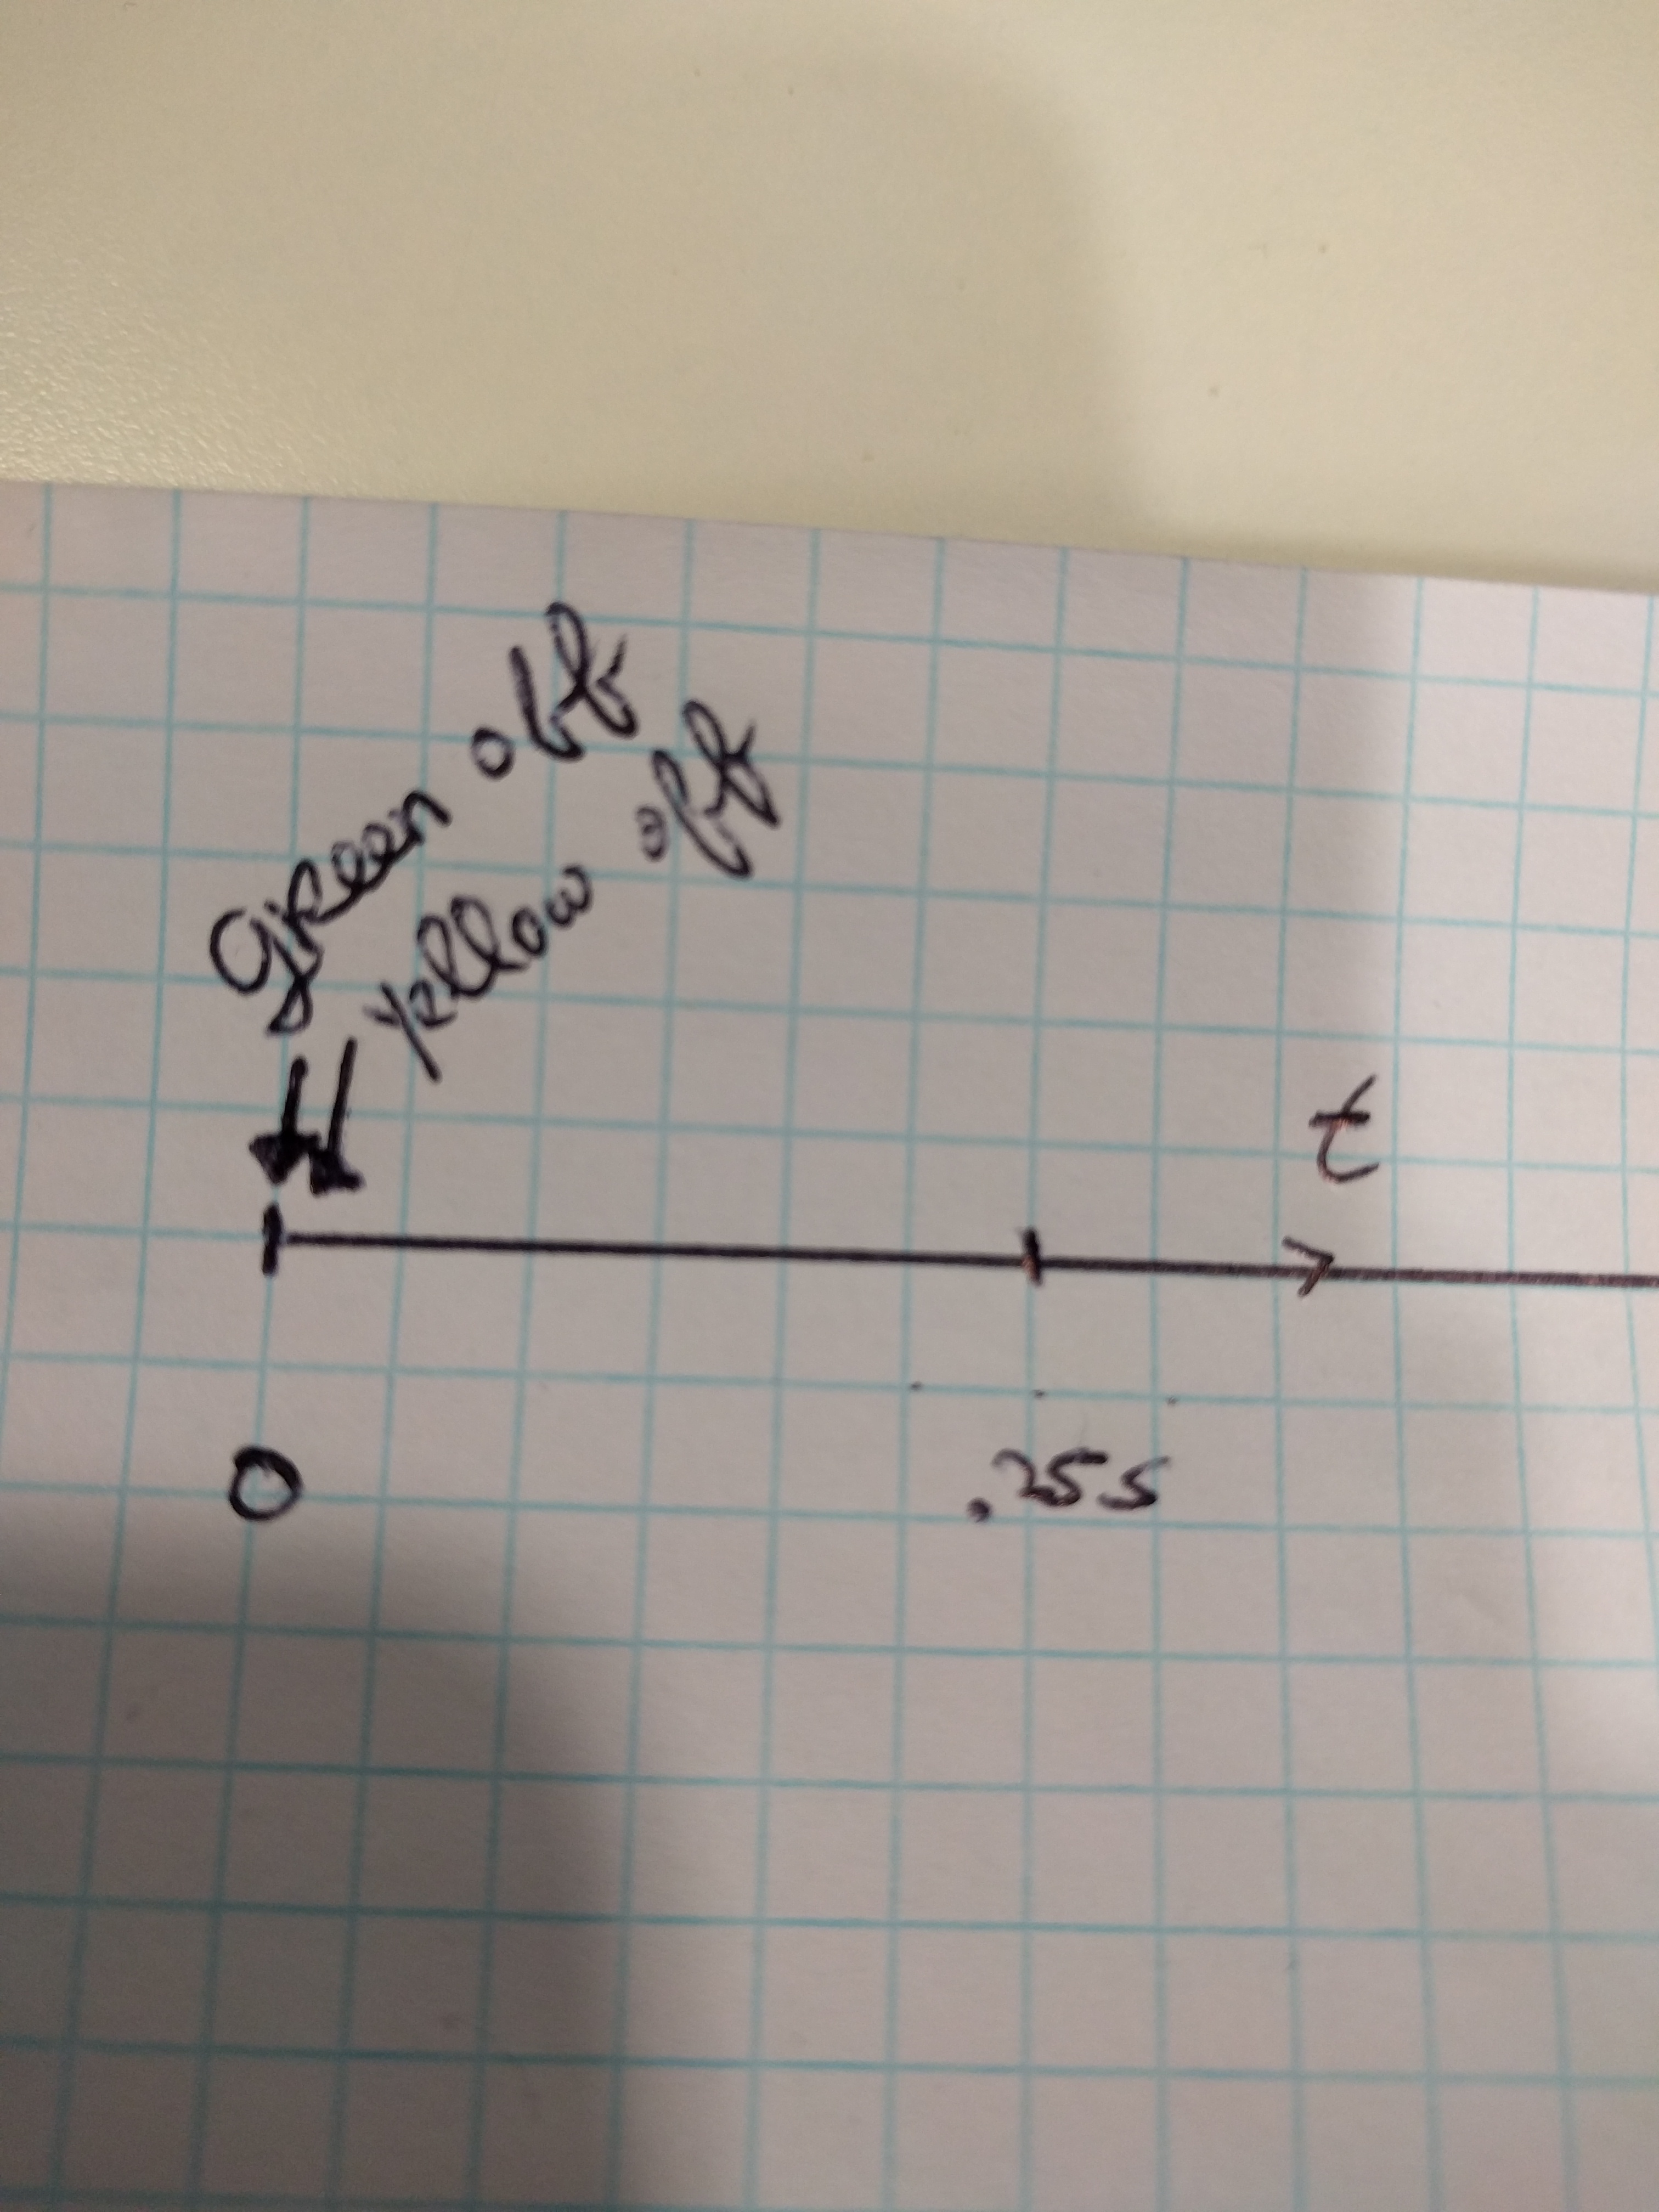 green off
yellow off
t
0
.25s